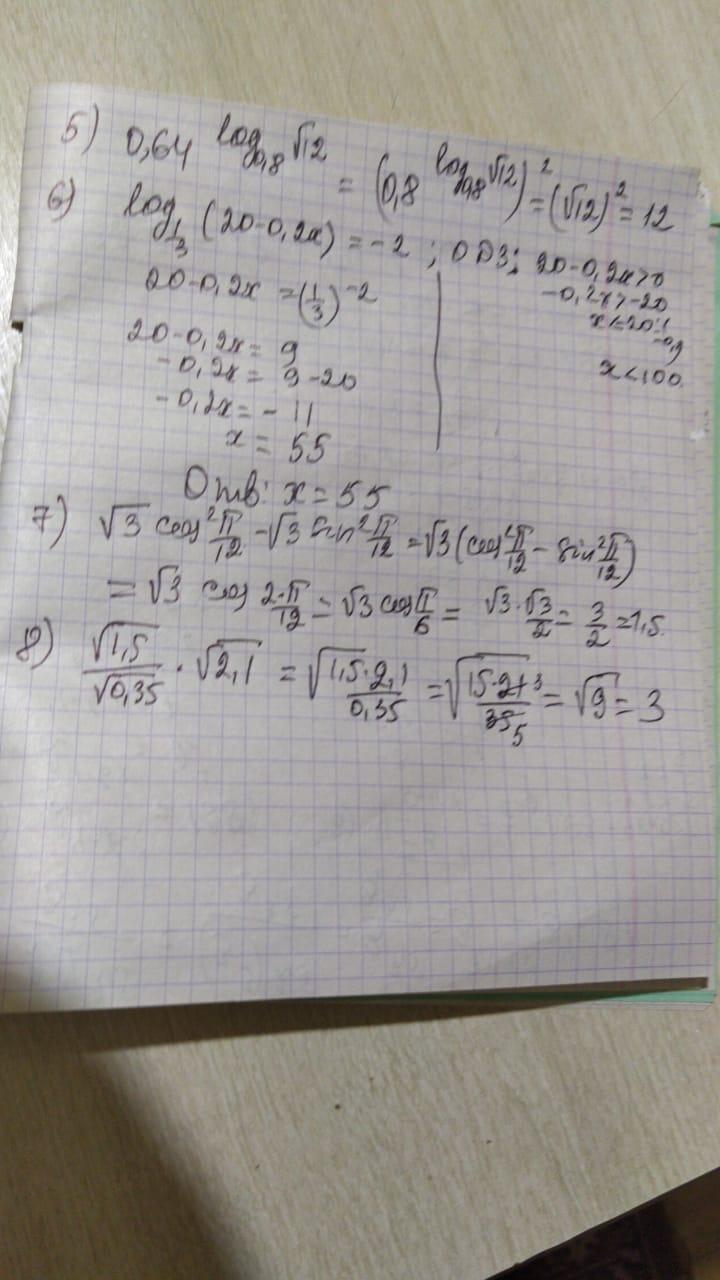 5) 0,64^log_0,8 √12 = (0,8^log_0,8 √12)^2 = (√12)^2 = 12
6) log_1/3 (20-0,2x) = -2 ; ОДЗ: 20-0,2x>0
-0,2x>-20
20-0,2x = (1/3)^-2
20-0,2x = 9
-0,2x = 9-20
x<100
-0,2x = -11
x = 55
Отв: x = 55
7) √3 cos^2 π/12 - √3 sin^2 π/12 = √3 (cos^2 π/12 - sin^2 π/12)
= √3 cos 2·π/12 = √3 cos π/6 = √3·√3/2 = 3/2 = 1,5.
8) √1,5/√0,35 · √2,1 = √(1,5·2,1/0,35) = √(15·21 3/35 5) = √9 = 3